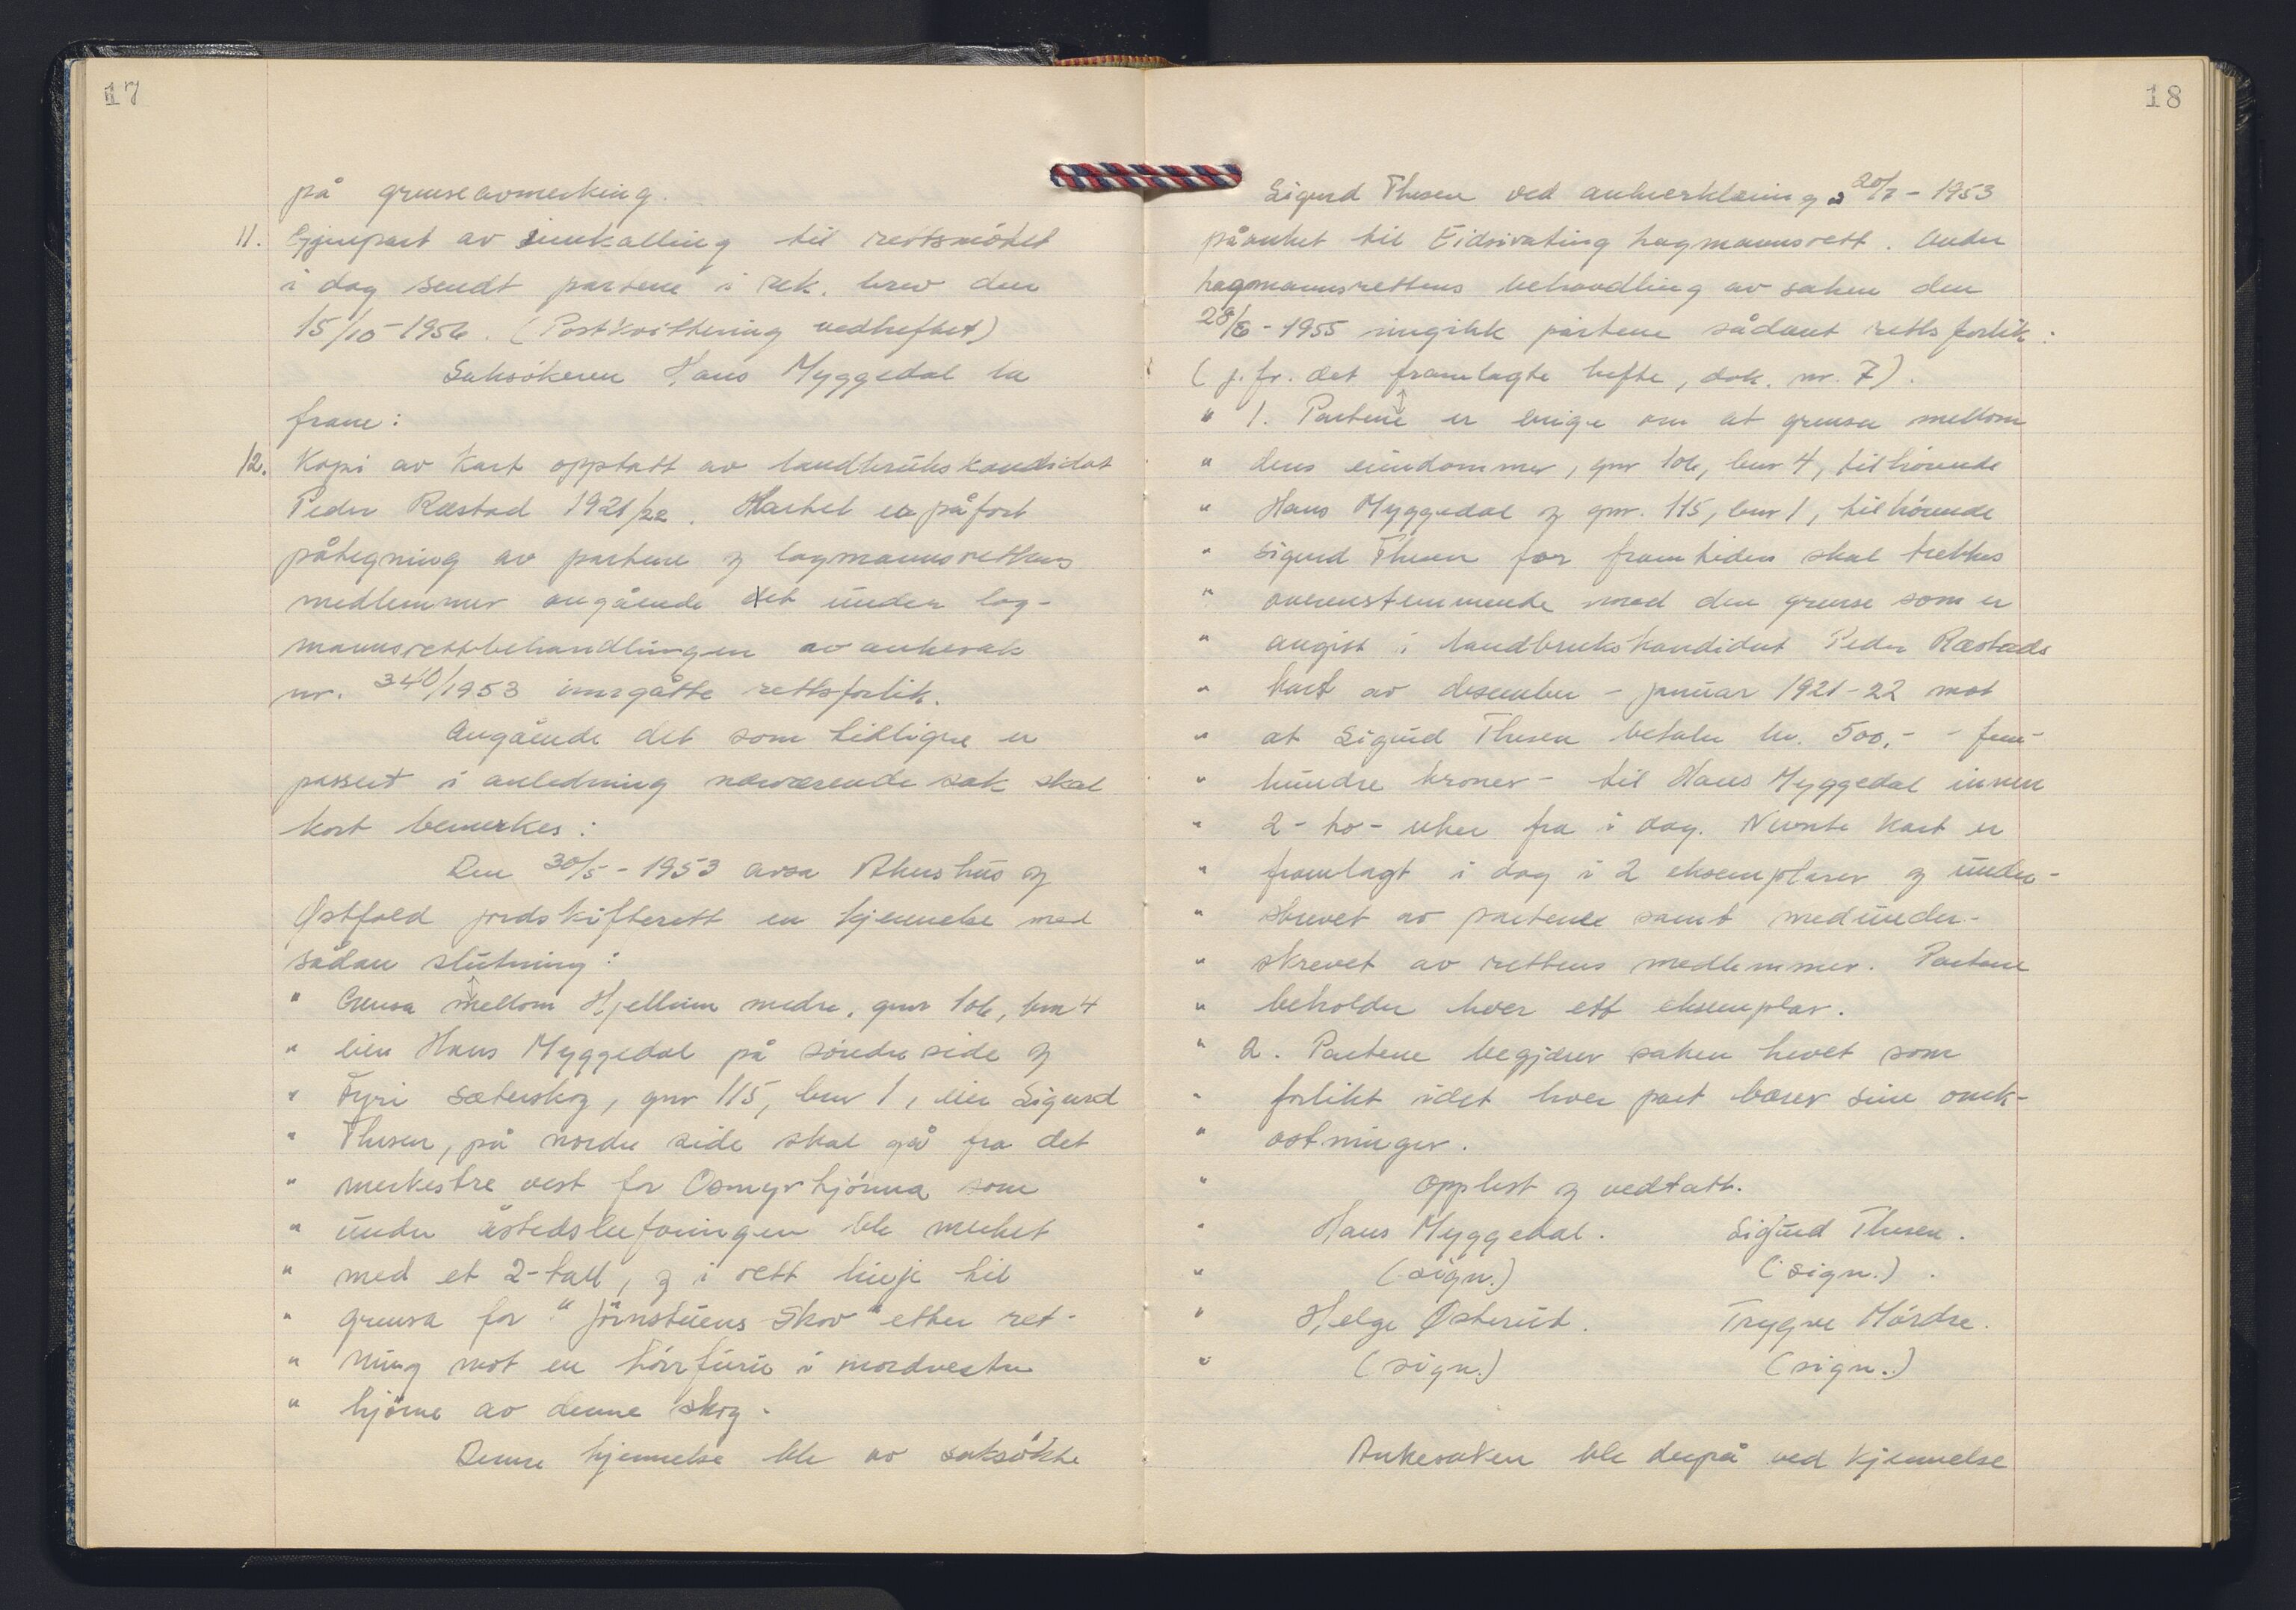 17
på grenseavmerking.
11. Gjenpart av innkalling til rettsmötet
i dag sendt partene i rek. brev den
15/10-1956. (Postkvittering vedheftet)
Saksökeren Hans Myggedal la
fram:
12. Kopi av kart opptatt av landbrukskandidat
Peder Ræstad 1921/22. Kartet er påfört
påtegning av partene og lagmannsrettens
medlemmer angående det under lag-
mannsrettsbehandlingen av ankesak
nr. 340/1953 inngåtte rettsforlik.
Angående det som tidligere er
passert i anledning nærværende sak skal
kort bemerkes:
Den 30/5-1953 avsa Akershus og
Østfold jordskifterett en kjennelse med
sådan slutning:
" Grensa mellom Hjellum nedre, gnr 106, bnr 4
" eier Hans Myggedal på söndre side og
" Fyri Sæterskog, gnr 115, bnr 1, eier Sigurd
" Thesen, på nordre side skal gå fra det
" merkestre vest for Osmyrtjönna som
" under åstedsbefaringen ble merket
" med et 2-tall, og i rett linje til
" grensa for "Jörnstuens Skov" etter ret-
" ning mot en törrfuru i nordvestre
" hjörne av denne skog.
Denne kjennelse ble av saksökte
18
Sigurd Thesen ved ankeerklæring av 20/7-1953
påanket til Eidsivating lagmannsrett. Under
lagmannsrettens behandling av saken den
28/6-1955 inngikk partene sådant rettsforlik:
(j.fr. det framlagte hefte, dok. nr. 7).
" 1. Partene er enige om at grensen mellom
" deres eiendommer, gnr 106, bnr 4, tilhörende
" Hans Myggedal og gnr. 115, bnr 1, tilhörende
" Sigurd Thesen for framtiden skal trekkes
" overenstemmende med den grense som er
" angitt i landbrukskandidat Peder Ræstads
" kart av desember - januar 1921-22 mot
" at Sigurd Thesen betaler kr. 500,- - fem-
" hundre kroner - til Hans Myggedal innen
" 2 - to - uker fra i dag. Nevnte kart er
" framlagt i dag i 2 eksemplarer og under-
" skrevet av partene samt medunder-
" skrevet av rettens medlemmer. Partene
" beholder hver ett eksemplar.
" 2. Partene begjærer saken hevet som
" forlikt idet hver part bærer sine omk-
" ostninger.
" Opplest og vedtatt.
" Hans Myggedal. Sigurd Thesen.
" (sign.) (sign.).
" Helge Østerud. Trygve Mördre.
" (sign.) (sign.)
Ankesaken ble derpå ved kjennelse